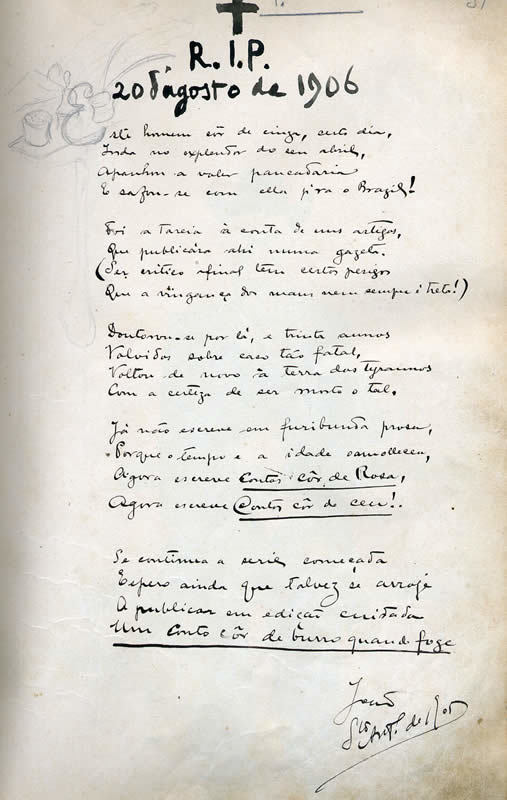 R.I.P.
20 d'agosto de 1906
Este homem côr de cinza, certo dia,
Inda no explendor do seu abril,
Apanhou a valer pancadaria
E safou-se com ella p'ra o Brazil!
Foi a tareia à conta de uns artigos,
Que publicára ahi numa gazeta.
(Ser critico afinal tem certos perigos
Que a vingança dos maus nem sempre é treta!)
Doutorou-se por lá, e trinta annos
Volvidos sobre caso tão fatal,
Voltou de novo à terra dos tyrannos
Com a certeza de ser morto o tal.
Já não escreve em furibunda prosa,
Porque o tempo e a idade o amolleceu,
Agora escreve Contos côr de Rosa,
Agora escreve Contos côr do ceu!.
Se continua a serie começada
Espero ainda que talvez se arroje
A publicar em edição cuidada
Um Conto côr de burro quando foge
João
de 1905